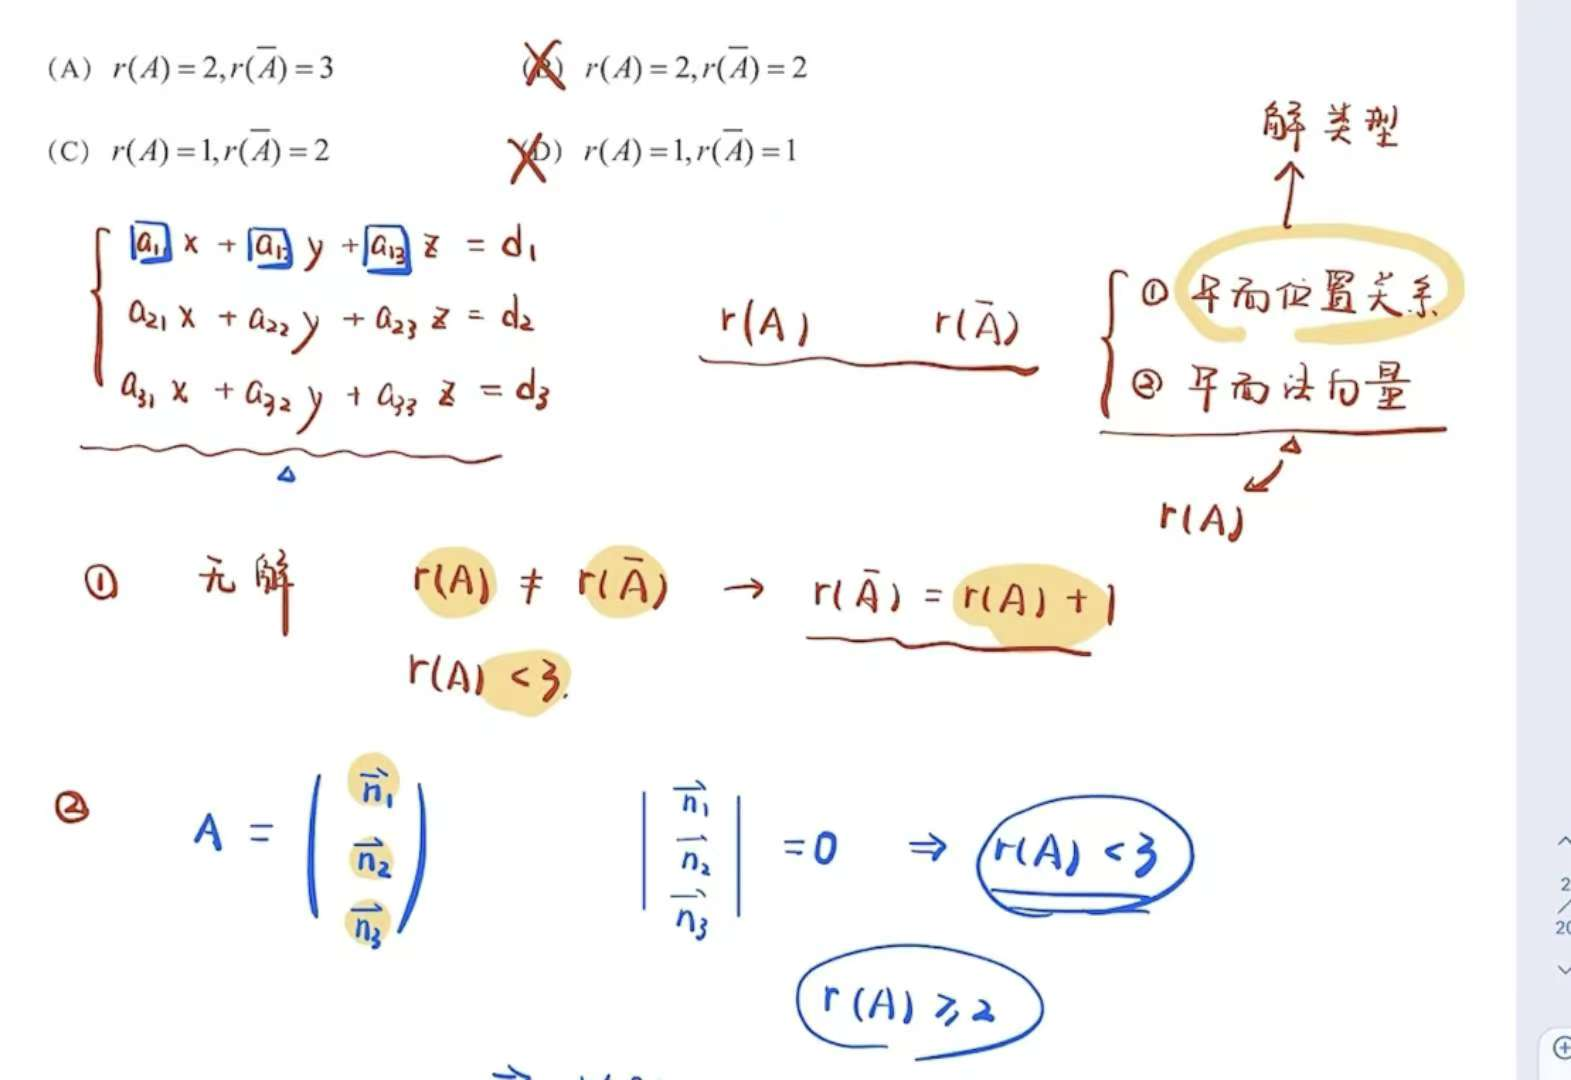 (A) r(A)=2,r(A̅)=3 (B) r(A)=2,r(A̅)=2
(C) r(A)=1,r(A̅)=2 (D) r(A)=1,r(A̅)=1
解类型
a₁₁ x + a₁₂ y + a₁₃ z = d₁
a₂₁ x + a₂₂ y + a₂₃ z = d₂
a₃₁ x + a₃₂ y + a₃₃ z = d₃
r(A) r(A̅)
① 平面位置关系
② 平面法向量
r(A)
① 无解 r(A) ≠ r(A̅) → r(A̅) = r(A) + 1
r(A) < 3.
② A = (n⃗₁ n⃗₂ n⃗₃) |n⃗₁ n⃗₂ n⃗₃| = 0 ⇒ r(A) < 3
r(A) ≥ 2
2
/